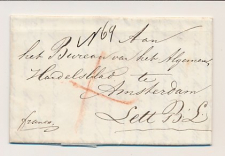 N 64 Aan
het Bureau van het Algemeen
Handelsblad te
Amsterdam
Lett B. L
franco